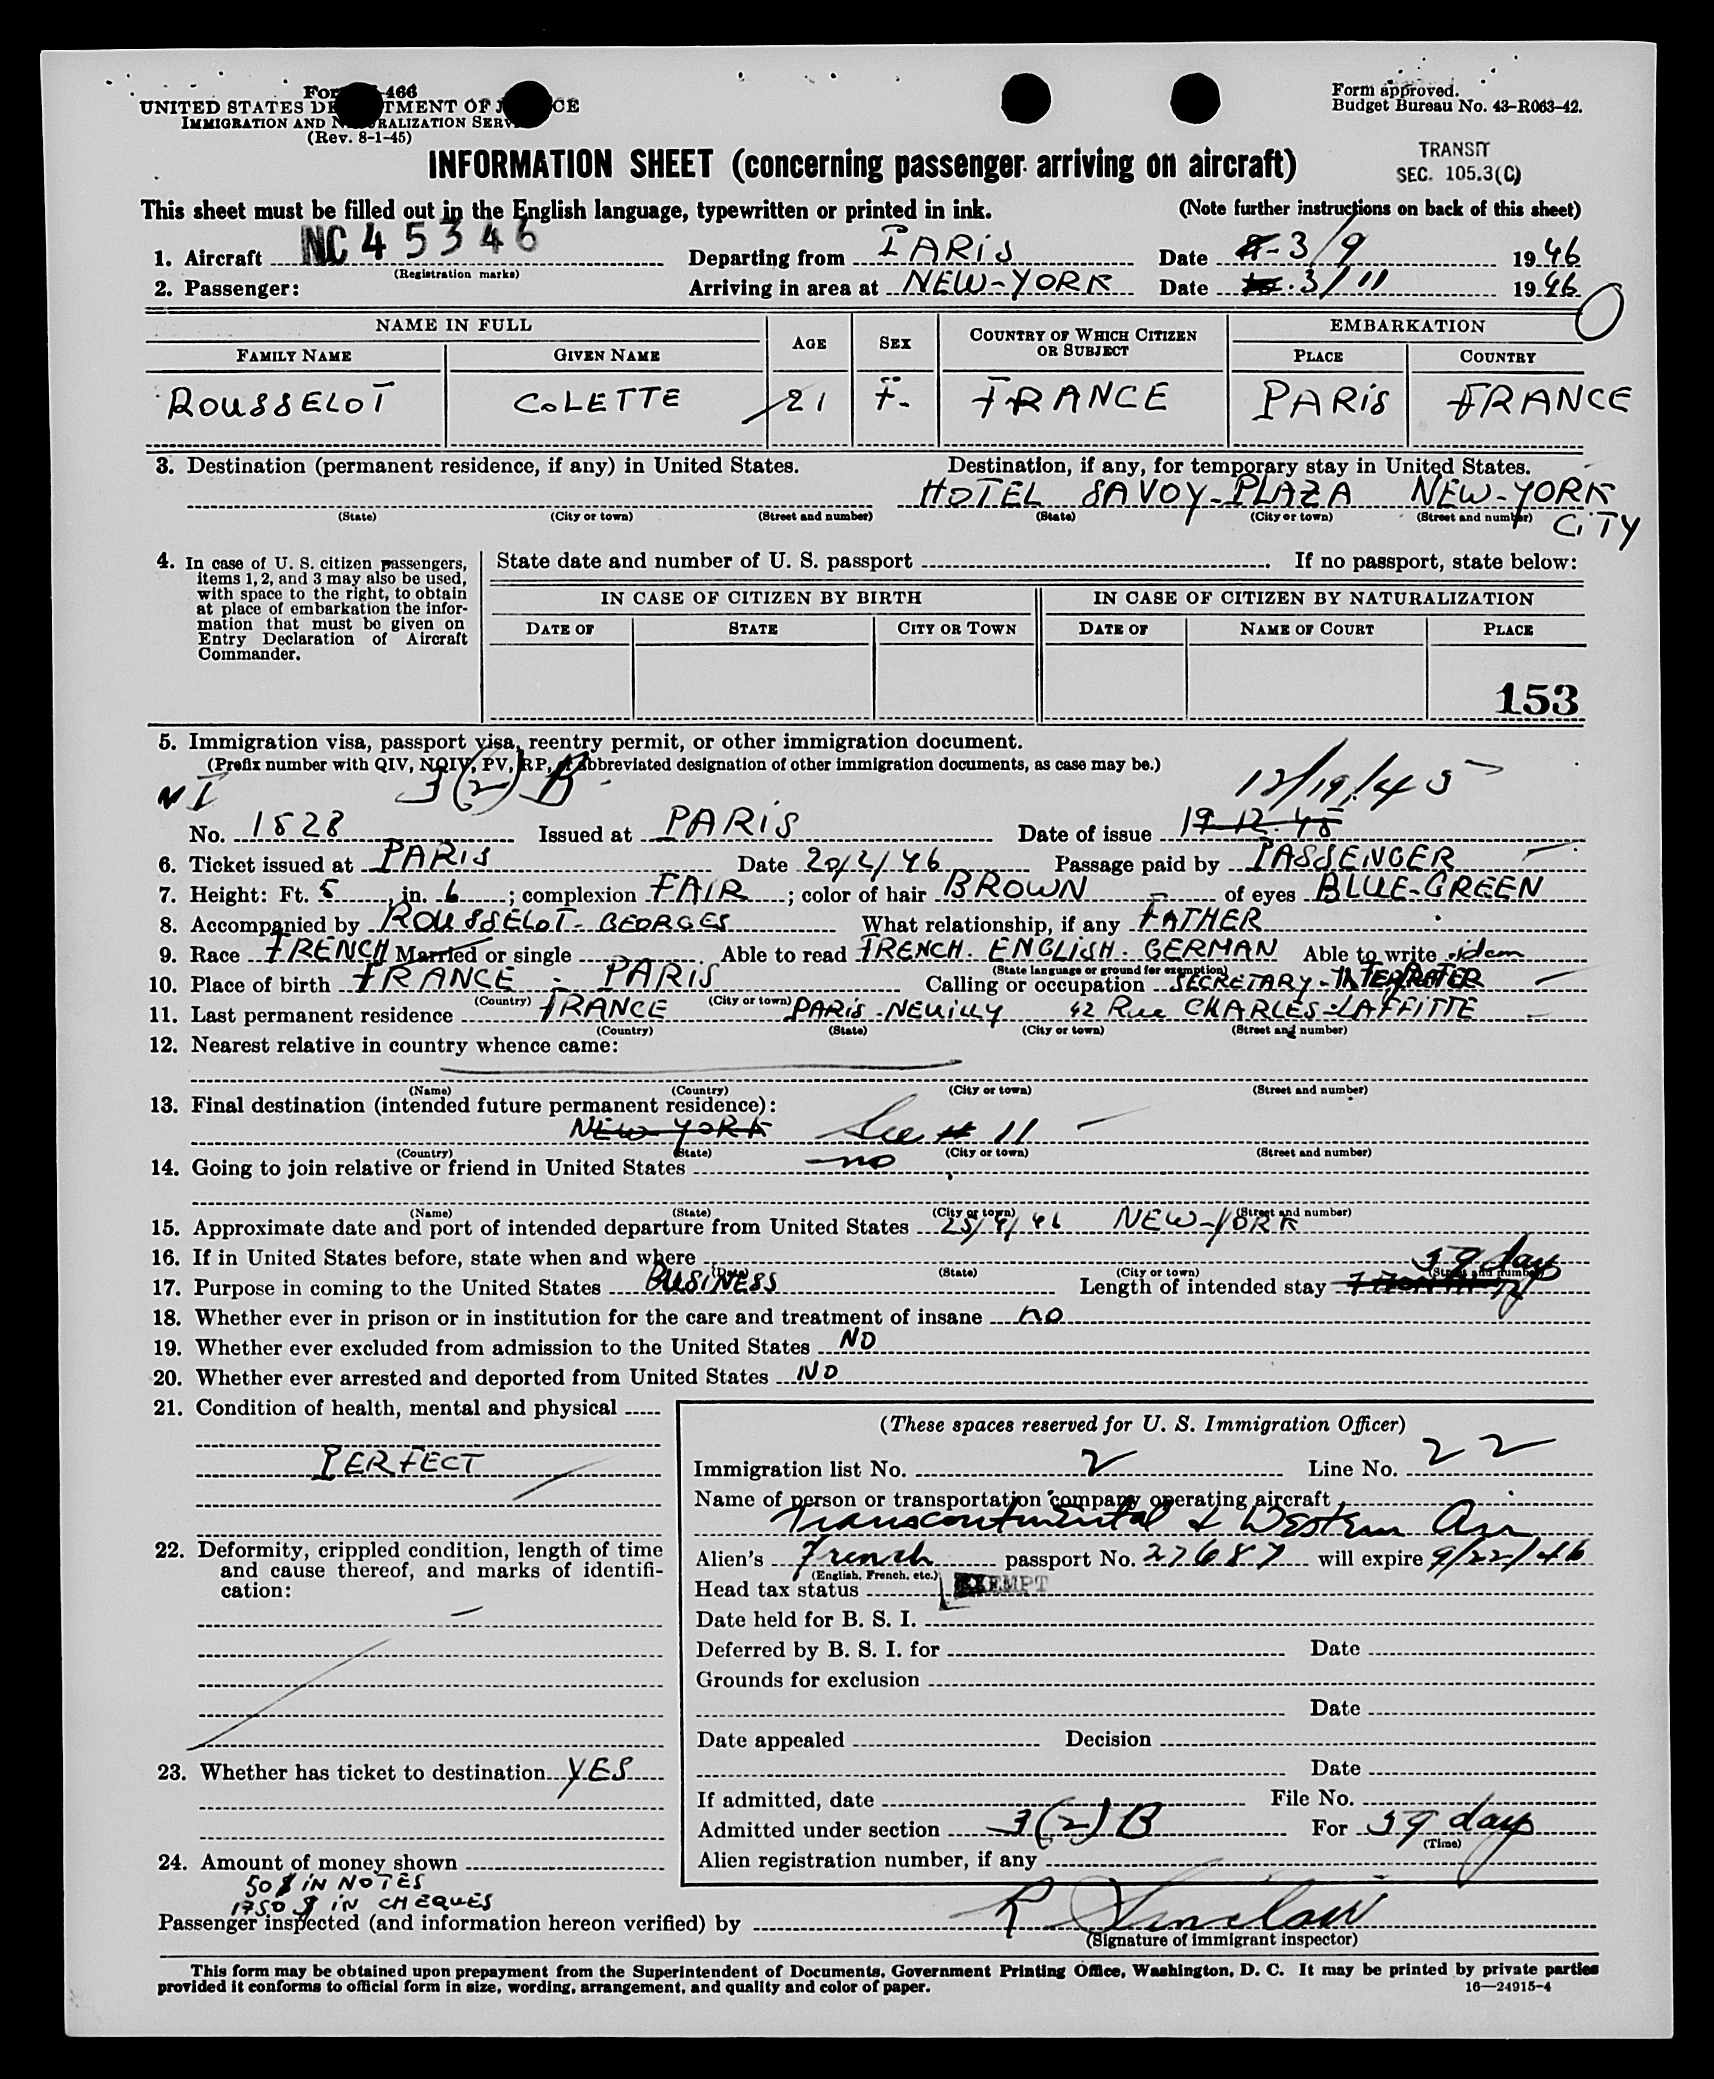 Form 466
UNITED STATES DEPARTMENT OF JUSTICE
IMMIGRATION AND NATURALIZATION SERVICE
(Rev. 8-1-45)
Form approved.
Budget Bureau No. 43-R063-42.
TRANSIT
SEC. 105.3(C)
INFORMATION SHEET (concerning passenger arriving on aircraft)
This sheet must be filled out in the English language, typewritten or printed in ink. (Note further instructions on back of this sheet)
1. Aircraft NC 45346 Departing from PARIS Date 3/9 1946
(Registration marks)
2. Passenger: Arriving in area at NEW-YORK Date 3/11 1946
NAME IN FULL AGE SEX COUNTRY OF WHICH CITIZEN OR SUBJECT EMBARKATION
FAMILY NAME GIVEN NAME PLACE COUNTRY
ROUSSELOT COLETTE 21 F. FRANCE PARIS FRANCE
3. Destination (permanent residence, if any) in United States. Destination, if any, for temporary stay in United States.
HOTEL SAVOY-PLAZA NEW-YORK CITY
(State) (City or town) (Street and number) (State) (City or town) (Street and number)
4. In case of U. S. citizen passengers, items 1, 2, and 3 may also be used, with space to the right, to obtain at place of embarkation the information that must be given on Entry Declaration of Aircraft Commander.
State date and number of U. S. passport If no passport, state below:
IN CASE OF CITIZEN BY BIRTH IN CASE OF CITIZEN BY NATURALIZATION
DATE OF STATE CITY OR TOWN DATE OF NAME OF COURT PLACE
153
5. Immigration visa, passport visa, reentry permit, or other immigration document.
(Prefix number with QIV, NQIV, PV, RP, or abbreviated designation of other immigration documents, as case may be.)
NI 3(2)B 12/19/45
No. 1828 Issued at PARIS Date of issue 19-12-45
6. Ticket issued at PARIS Date 20/2/46 Passage paid by PASSENGER
7. Height: Ft. 5, in. 6; complexion FAIR; color of hair BROWN of eyes BLUE-GREEN
8. Accompanied by ROUSSELOT-GEORGES What relationship, if any FATHER
9. Race FRENCH Married or single Able to read FRENCH. ENGLISH. GERMAN Able to write idem
(State language or ground for exemption)
10. Place of birth FRANCE - PARIS Calling or occupation SECRETARY-INTERPRETER
(Country) (City or town)
11. Last permanent residence FRANCE PARIS-NEUILLY 42 Rue CHARLES-LAFFITTE
(Country) (State) (City or town) (Street and number)
12. Nearest relative in country whence came:
(Name) (Country) (City or town) (Street and number)
13. Final destination (intended future permanent residence):
NEW-YORK See # 11
(Country) (State) (City or town) (Street and number)
14. Going to join relative or friend in United States no
(Name) (State) (City or town) (Street and number)
15. Approximate date and port of intended departure from United States 25/4/46 NEW-YORK
16. If in United States before, state when and where
(Date) (State) (City or town) (Street and number)
17. Purpose in coming to the United States BUSINESS Length of intended stay 59 day
18. Whether ever in prison or in institution for the care and treatment of insane no
19. Whether ever excluded from admission to the United States NO
20. Whether ever arrested and deported from United States NO
21. Condition of health, mental and physical
PERFECT
22. Deformity, crippled condition, length of time and cause thereof, and marks of identification:
23. Whether has ticket to destination YES
24. Amount of money shown
50 $ IN NOTES
1750 $ IN CHEQUES
(These spaces reserved for U. S. Immigration Officer)
Immigration list No. 2 Line No. 22
Name of person or transportation company operating aircraft
Transcontinental & Western Air
Alien's French passport No. 27687 will expire 9/22/46
(English, French, etc.)
Head tax status EXEMPT
Date held for B. S. I.
Deferred by B. S. I. for Date
Grounds for exclusion
Date
Date appealed Decision
Date
If admitted, date File No.
Admitted under section 3(2)B For 59 day
(Time)
Alien registration number, if any
Passenger inspected (and information hereon verified) by R Sinclair
(Signature of immigrant inspector)
This form may be obtained upon prepayment from the Superintendent of Documents, Government Printing Office, Washington, D. C. It may be printed by private parties
provided it conforms to official form in size, wording, arrangement, and quality and color of paper. 16—24915-4